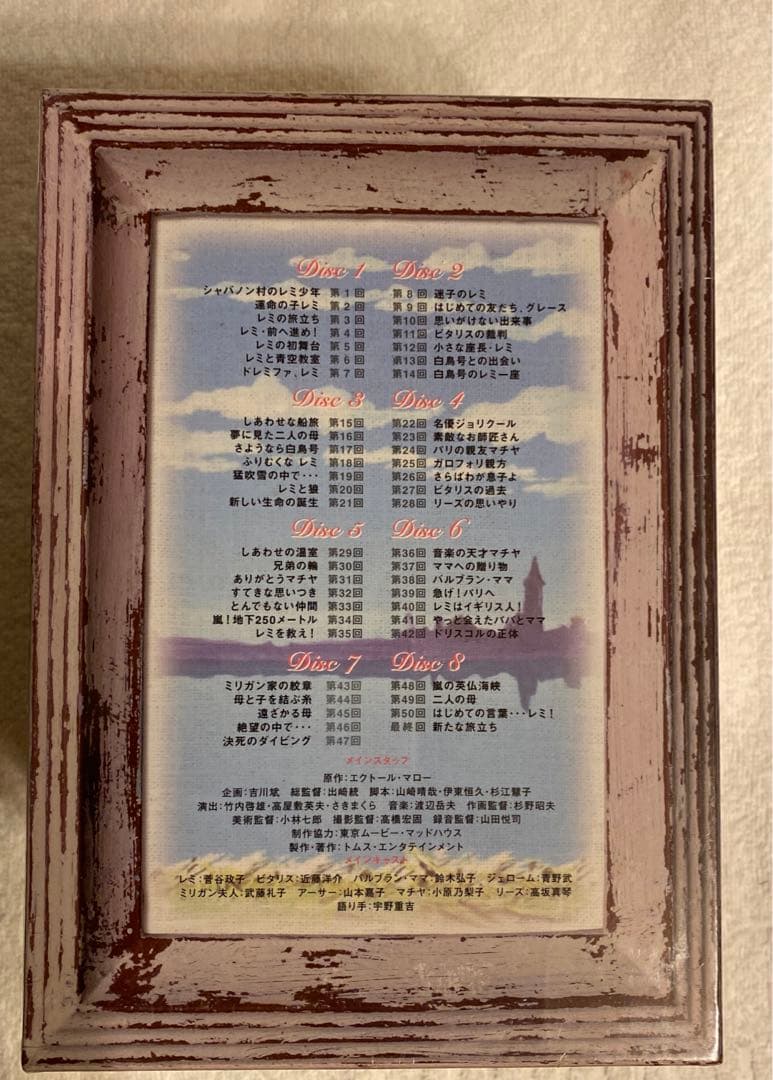 Disc 1
シャバノン村のレミ少年 第1回
運命の子レミ 第2回
レミの旅立ち 第3回
レミ・前へ進め! 第4回
レミの初舞台 第5回
レミと青空教室 第6回
ドレミファ、レミ 第7回
Disc 2
第8回 迷子のレミ
第9回 はじめての友だち、グレース
第10回 思いがけない出来事
第11回 ビタリスの裁判
第12回 小さな座長・レミ
第13回 白鳥号との出会い
第14回 白鳥号のレミ一座
Disc 3
しあわせな船旅 第15回
夢に見た二人の母 第16回
さようなら白鳥号 第17回
ふりむくな レミ 第18回
猛吹雪の中で・・・ 第19回
レミと狼 第20回
新しい生命の誕生 第21回
Disc 4
第22回 名優ジョリクール
第23回 素敵なお師匠さん
第24回 パリの親友マチヤ
第25回 ガロフォリ親方
第26回 さらばわが息子よ
第27回 ビタリスの過去
第28回 リーズの思いやり
Disc 5
しあわせの温室 第29回
兄弟の輪 第30回
ありがとうマチヤ 第31回
すてきな思いつき 第32回
とんでもない仲間 第33回
嵐!地下250メートル 第34回
レミを救え! 第35回
Disc 6
第36回 音楽の天才マチヤ
第37回 ママへの贈り物
第38回 バルブラン・ママ
第39回 急げ!パリへ
第40回 レミはイギリス人!
第41回 やっと会えたパパとママ
第42回 ドリスコルの正体
Disc 7
ミリガン家の紋章 第43回
母と子を結ぶ糸 第44回
遠ざかる母 第45回
絶望の中で・・・ 第46回
決死のダイビング 第47回
Disc 8
第48回 嵐の英仏海峡
第49回 二人の母
第50回 はじめての言葉・・・レミ!
最終回 新たな旅立ち
メインスタッフ
原作:エクトール・マロー
企画:吉川斌 総監督:出崎統 脚本:山崎晴哉・伊東恒久・杉江慧子
演出:竹内啓雄・高屋敷英夫・さきまくら 音楽:渡辺岳夫 作画監督:杉野昭夫
美術監督:小林七郎 撮影監督:高橋宏固 録音監督:山田悦司
制作協力:東京ムービー・マッドハウス
製作・著作:トムス・エンタテインメント
メインキャスト
レミ:菅谷政子 ビタリス:近藤洋介 バルブラン・ママ:鈴木弘子 ジェローム:青野武
ミリガン夫人:武藤礼子 アーサー:山本嘉子 マチヤ:小原乃梨子 リーズ:高坂真琴
語り手:宇野重吉